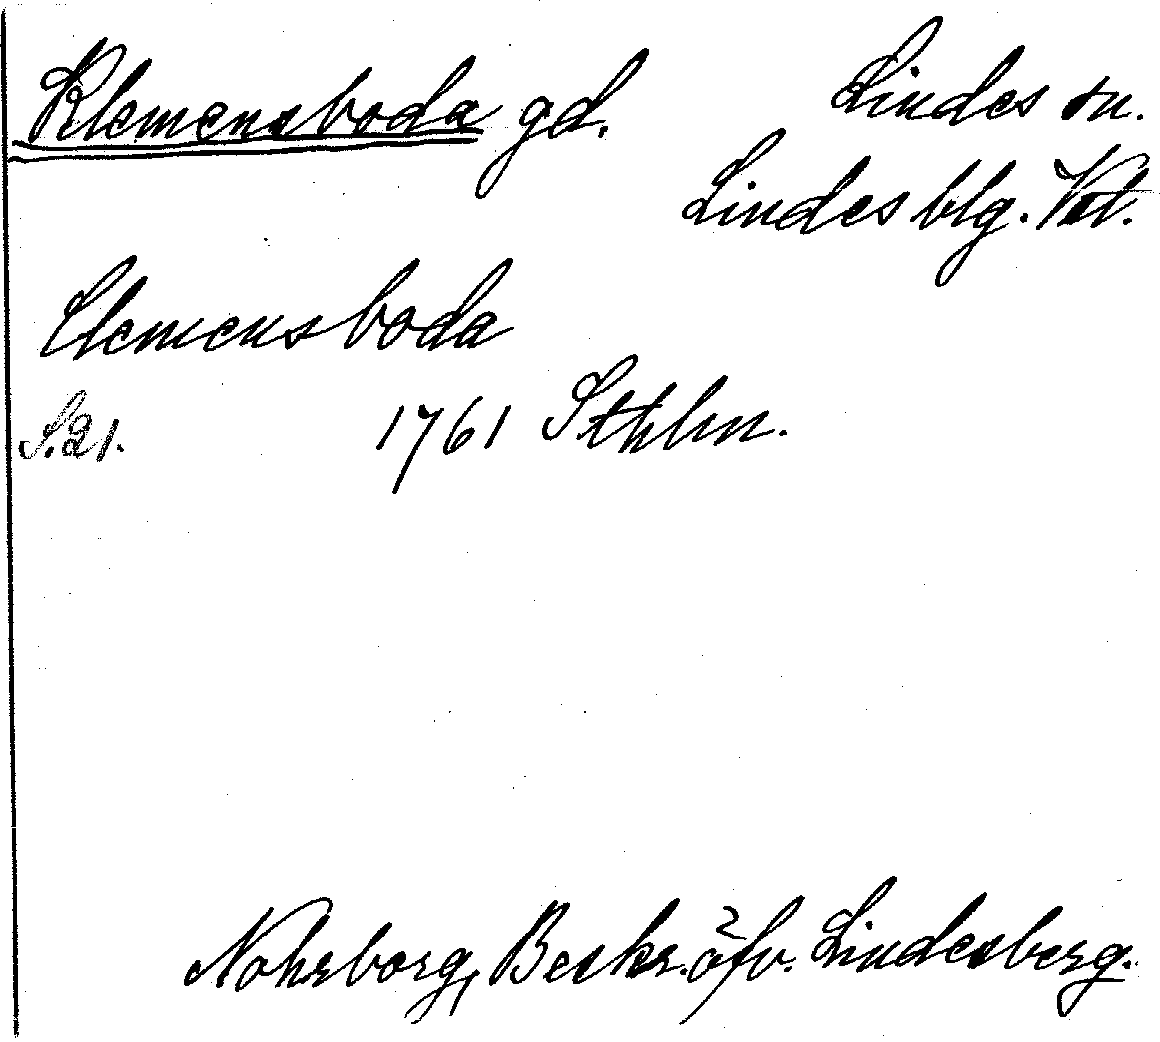 Klemensboda gd. Lindes sn.
Lindes blg. Vstl.
Clemensboda
S. 21. 1761 Sthlm.
Nohrborg, Beskr. öfv. Lindesberg.